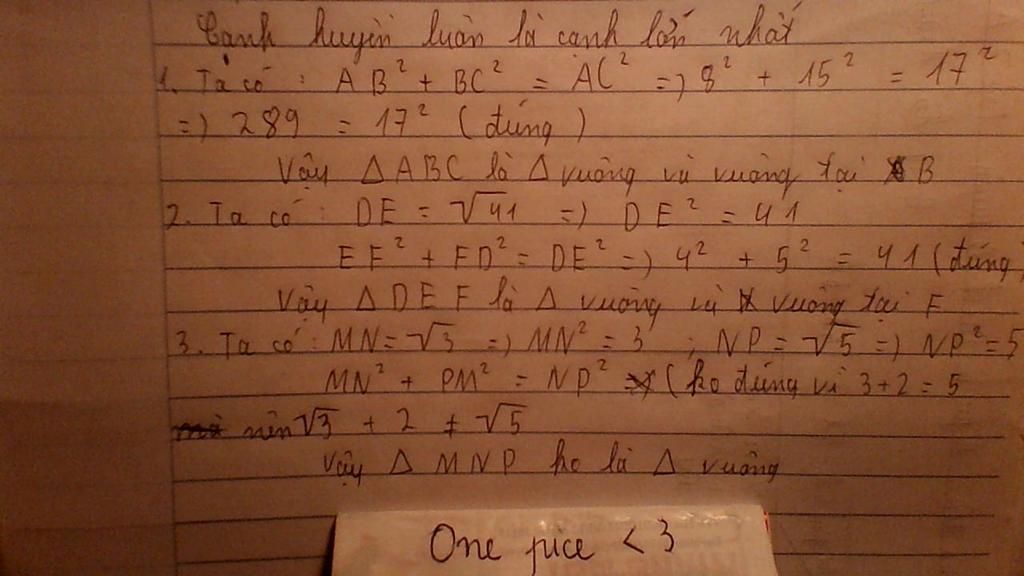 Cạnh huyền luôn là cạnh lớn nhất
1. Ta có : AB² + BC² = AC² => 8² + 15² = 17²
=> 289 = 17² (đúng)
Vậy △ABC là △ vuông và vuông tại B
2. Ta có : DE = √41 => DE² = 41
EF² + FD² = DE² => 4² + 5² = 41 (đúng)
Vậy △DEF là △ vuông và vuông tại F
3. Ta có : MN = √3 => MN² = 3 ; NP = √5 => NP² = 5
MN² + PM² = NP² (ko đúng vì 3+2 = 5
nên √3 + 2 ≠ √5
Vậy △ MNP ko là △ vuông
One pice <3